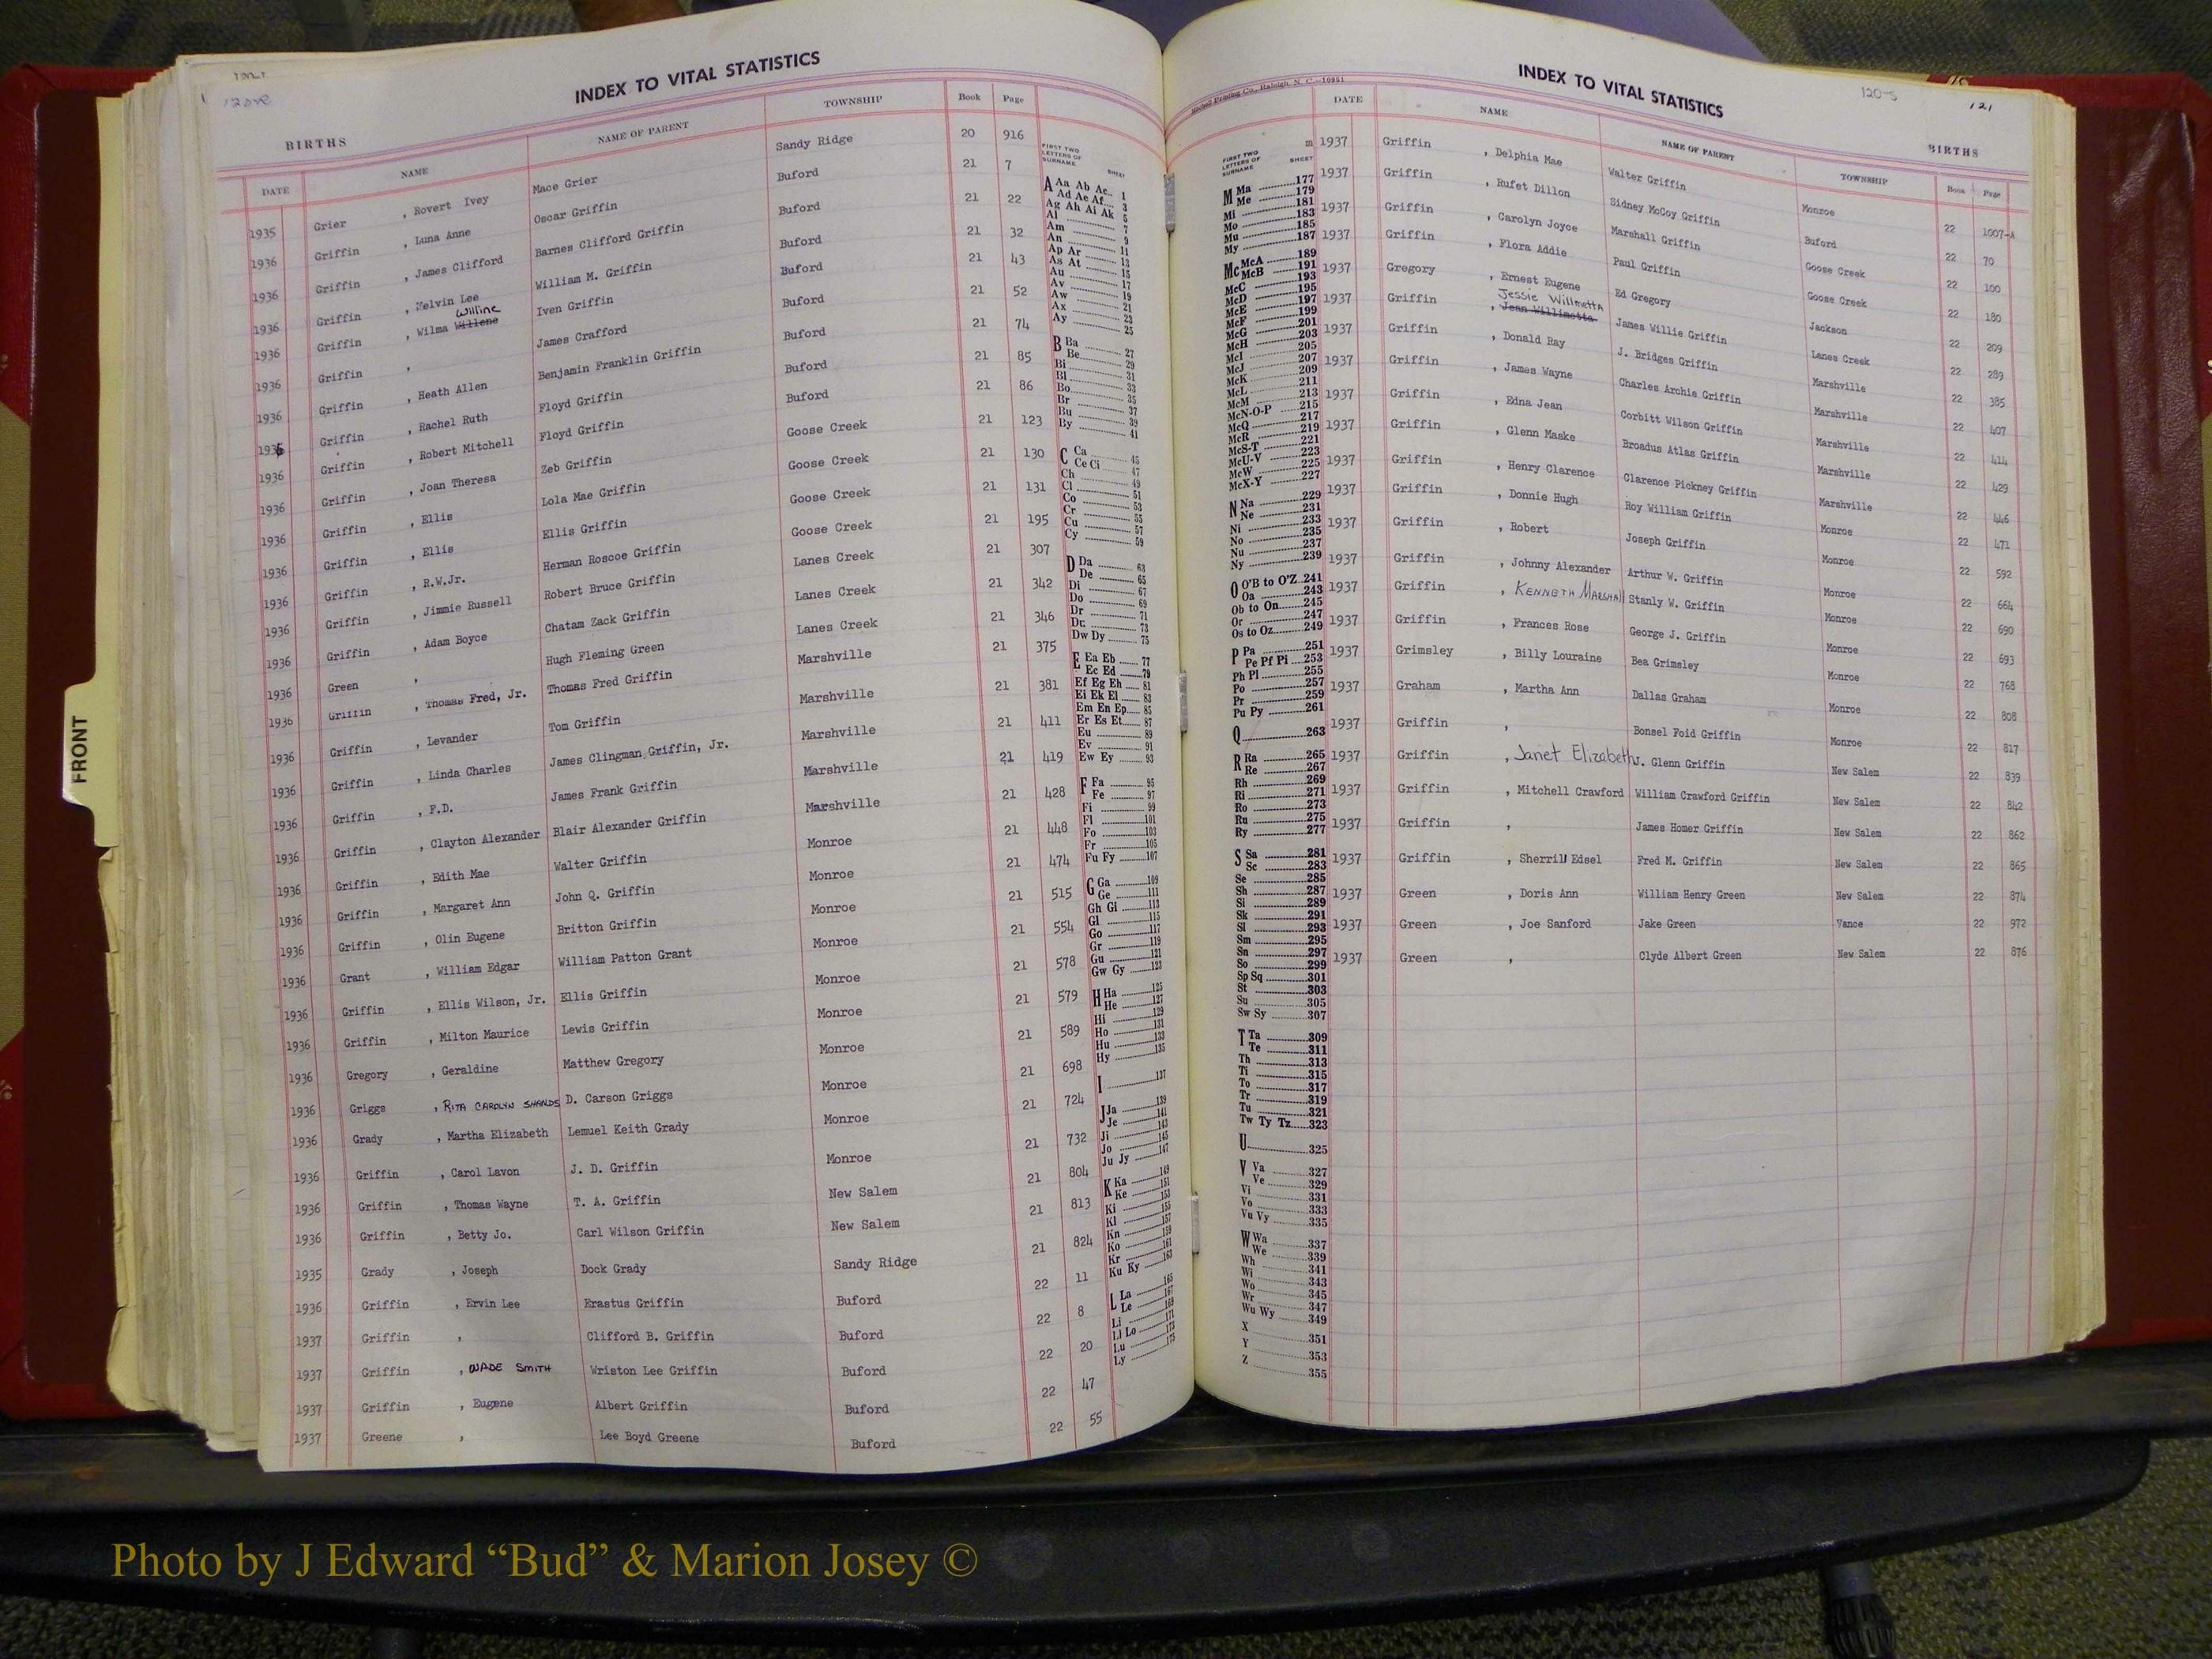 120-1
120-R
INDEX TO VITAL STATISTICS
BIRTHS
DATE NAME NAME OF PARENT TOWNSHIP Book Page
1935 Grier , Rovert Ivey Mace Grier Sandy Ridge 20 916
1936 Griffin , Luna Anne Oscar Griffin Buford 21 7
1936 Griffin , James Clifford Barnes Clifford Griffin Buford 21 22
1936 Griffin , Melvin Lee William M. Griffin Buford 21 32
Willine
1936 Griffin , Wilma Willene Iven Griffin Buford 21 43
1936 Griffin , James Crafford Buford 21 52
1936 Griffin , Heath Allen Benjamin Franklin Griffin Buford 21 74
1936 Griffin , Rachel Ruth Floyd Griffin Buford 21 85
1936 Griffin , Robert Mitchell Floyd Griffin Buford 21 86
1936 Griffin , Joan Theresa Zeb Griffin Goose Creek 21 123
1936 Griffin , Ellis Lola Mae Griffin Goose Creek 21 130
1936 Griffin , Ellis Ellis Griffin Goose Creek 21 131
1936 Griffin , R.W.Jr. Herman Roscoe Griffin Goose Creek 21 195
1936 Griffin , Jimmie Russell Robert Bruce Griffin Lanes Creek 21 307
1936 Griffin , Adam Boyce Chatam Zack Griffin Lanes Creek 21 342
1936 Green , Hugh Fleming Green Lanes Creek 21 346
1936 Griffin , Thomas Fred, Jr. Thomas Fred Griffin Marshville 21 375
1936 Griffin , Levander Tom Griffin Marshville 21 381
1936 Griffin , Linda Charles James Clingman Griffin, Jr. Marshville 21 411
1936 Griffin , F.D. James Frank Griffin Marshville 21 419
1936 Griffin , Clayton Alexander Blair Alexander Griffin Marshville 21 428
1936 Griffin , Edith Mae Walter Griffin Monroe 21 448
1936 Griffin , Margaret Ann John Q. Griffin Monroe 21 474
1936 Griffin , Olin Eugene Britton Griffin Monroe 21 515
1936 Grant , William Edgar William Patton Grant Monroe 21 554
1936 Griffin , Ellis Wilson, Jr. Ellis Griffin Monroe 21 578
1936 Griffin , Milton Maurice Lewis Griffin Monroe 21 579
1936 Gregory , Geraldine Matthew Gregory Monroe 21 589
1936 Griggs , RITA CAROLYN SHANDS D. Carson Griggs Monroe 21 698
1936 Grady , Martha Elizabeth Lemuel Keith Grady Monroe 21 724
1936 Griffin , Carol Lavon J. D. Griffin Monroe 21 732
1936 Griffin , Thomas Wayne T. A. Griffin New Salem 21 804
1936 Griffin , Betty Jo. Carl Wilson Griffin New Salem 21 813
1935 Grady , Joseph Dock Grady Sandy Ridge 21 824
1936 Griffin , Ervin Lee Erastus Griffin Buford 22 11
1937 Griffin , Clifford B. Griffin Buford 22 8
1937 Griffin , WADE SMITH Wriston Lee Griffin Buford 22 20
1937 Griffin , Eugene Albert Griffin Buford 22 47
1937 Greene , Lee Boyd Greene Buford 22 55
FIRST TWO LETTERS OF SURNAME SHEET
A Aa Ab Ac 1
Ad Ae Af 3
Ag Ah Ai Ak 5
Al 7
Am 9
An 11
Ap Ar 13
As At 15
Au 17
Av 19
Aw 21
Ax 23
Ay 25
B Ba 27
Be 29
Bi 31
Bl 33
Bo 35
Br 37
Bu 39
By 41
C Ca 45
Ce Ci 47
Ch 49
Cl 51
Co 53
Cr 55
Cu 57
Cy 59
D Da 63
De 65
Di 67
Do 69
Dr 71
Du 73
Dw Dy 75
E Ea Eb 77
Ec Ed 79
Ef Eg Eh 81
Ei Ek El 83
Em En Ep 85
Er Es Et 87
Eu 89
Ev 91
Ew Ey 93
F Fa 95
Fe 97
Fi 99
Fl 101
Fo 103
Fr 105
Fu Fy 107
G Ga 109
Ge 111
Gh Gi 113
Gl 115
Go 117
Gr 119
Gu 121
Gw Gy 123
H Ha 125
He 127
Hi 129
Ho 131
Hu 133
Hy 135
I 137
J Ja 139
Je 141
Ji 143
Jo 145
Ju Jy 147
K Ka 149
Ke 151
Ki 153
Kl 155
Kn 157
Ko 159
Kr 161
Ku Ky 163
L La 165
Le 167
Li 169
Ll Lo 171
Lu 173
Ly 175
Printing Co., Raleigh, N. C.—10951
FIRST TWO LETTERS OF SURNAME SHEET
M Ma 177
Me 179
Mi 181
Mo 183
Mu 185
My 187
Mc McA 189
McB 191
McC 193
McD 195
McE 197
McF 199
McG 201
McH 203
McI 205
McJ 207
McK 209
McL 211
McM 213
McN-O-P 215
McQ 217
McR 219
McS-T 221
McU-V 223
McW 225
McX-Y 227
N Na 229
Ne 231
Ni 233
No 235
Nu 237
Ny 239
O O'B to O'Z 241
Oa 243
Ob to On 245
Or 247
Os to Oz 249
P Pa 251
Pe Pf Pi 253
Ph Pl 255
Po 257
Pr 259
Pu Py 261
Q 263
R Ra 265
Re 267
Rh 269
Ri 271
Ro 273
Ru 275
Ry 277
S Sa 281
Sc 283
Se 285
Sh 287
Si 289
Sk 291
Sl 293
Sm 295
Sn 297
So 299
Sp Sq 301
St 303
Su 305
Sw Sy 307
T Ta 309
Te 311
Th 313
Ti 315
To 317
Tr 319
Tu 321
Tw Ty Tz 323
U 325
V Va 327
Ve 329
Vi 331
Vo 333
Vu Vy 335
W Wa 337
We 339
Wh 341
Wi 343
Wo 345
Wr 347
Wu Wy 349
X 351
Y 353
Z 355
INDEX TO VITAL STATISTICS
120-S
121
BIRTHS
DATE NAME NAME OF PARENT TOWNSHIP Book Page
1937 Griffin , Delphia Mae Walter Griffin Monroe 22 1007-A
1937 Griffin , Rufet Dillon Sidney McCoy Griffin Buford 22 70
1937 Griffin , Carolyn Joyce Marshall Griffin Goose Creek 22 100
1937 Griffin , Flora Addie Paul Griffin Goose Creek 22 180
1937 Gregory , Ernest Eugene Ed Gregory Jackson 22 209
Jessie Willmetta
1937 Griffin , Jean Willimetta James Willie Griffin Lanes Creek 22 289
1937 Griffin , Donald Ray J. Bridges Griffin Marshville 22 385
1937 Griffin , James Wayne Charles Archie Griffin Marshville 22 407
1937 Griffin , Edna Jean Corbitt Wilson Griffin Marshville 22 414
1937 Griffin , Glenn Maske Broadus Atlas Griffin Marshville 22 429
1937 Griffin , Henry Clarence Clarence Pickney Griffin Marshville 22 446
1937 Griffin , Donnie Hugh Roy William Griffin Monroe 22 471
1937 Griffin , Robert Joseph Griffin Monroe 22 592
1937 Griffin , Johnny Alexander Arthur W. Griffin Monroe 22 664
1937 Griffin , KENNETH MARSHALL Stanly W. Griffin Monroe 22 690
1937 Griffin , Frances Rose George J. Griffin Monroe 22 693
1937 Grimsley , Billy Louraine Bea Grimsley Monroe 22 768
1937 Graham , Martha Ann Dallas Graham Monroe 22 808
1937 Griffin , Bonsel Foid Griffin Monroe 22 817
1937 Griffin , Janet Elizabeth J. Glenn Griffin New Salem 22 839
1937 Griffin , Mitchell Crawford William Crawford Griffin New Salem 22 842
1937 Griffin , James Homer Griffin New Salem 22 862
1937 Griffin , Sherrill Edsel Fred M. Griffin New Salem 22 865
1937 Green , Doris Ann William Henry Green New Salem 22 874
1937 Green , Joe Sanford Jake Green Vance 22 972
1937 Green , Clyde Albert Green New Salem 22 876
FRONT
Photo by J Edward “Bud” & Marion Josey ©